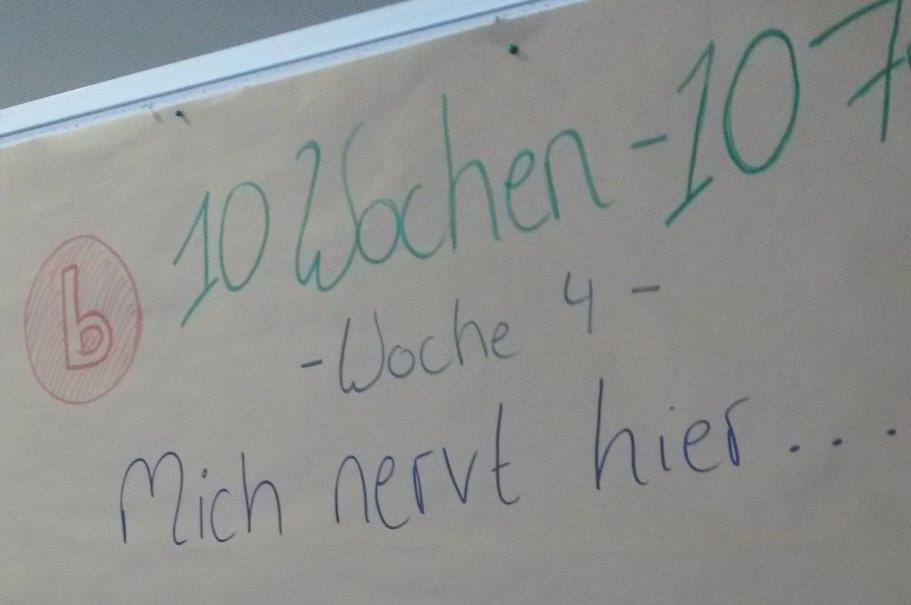 10 Wochen - 10
b
- Woche 4 -
Mich nervt hier...